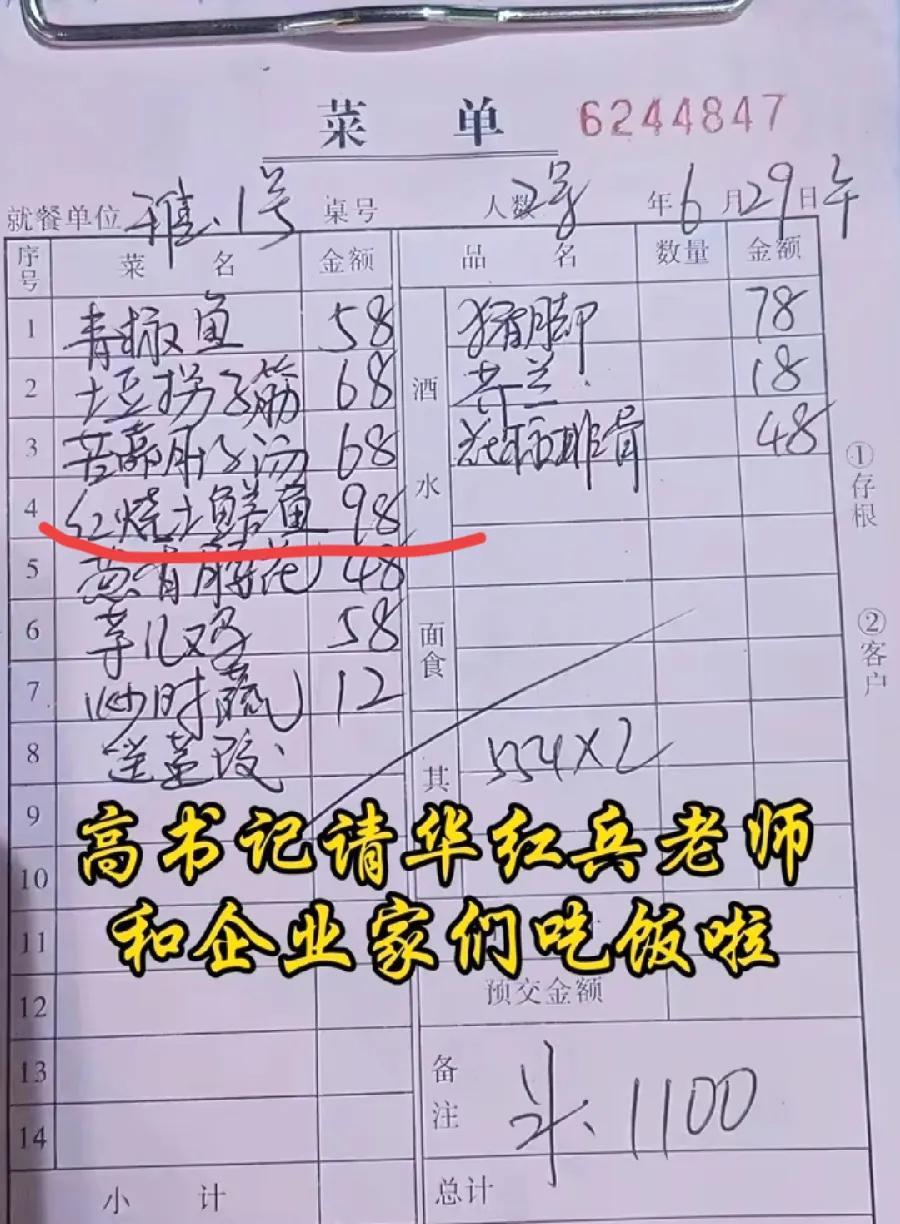 菜 单 6244847
就餐单位 雅.1号 桌号 人数 2号 年6月29日午
序号 菜 名 金额 品 名 数量 金额
1 青椒鱼 58 酒水 猪脚 78
2 土豆拐子筋 68 芥兰 18
3 68 排骨 48
4 红烧土鲫鱼 98
5 48 面食
6 芋儿鸡 58
7 炒时蔬 12
8 其 554×2
9
10
高书记请华红兵老师
和企业家们吃饭啦
11
12 预交金额
13 备注 1100
14
小 计 总计
①存根
②客户